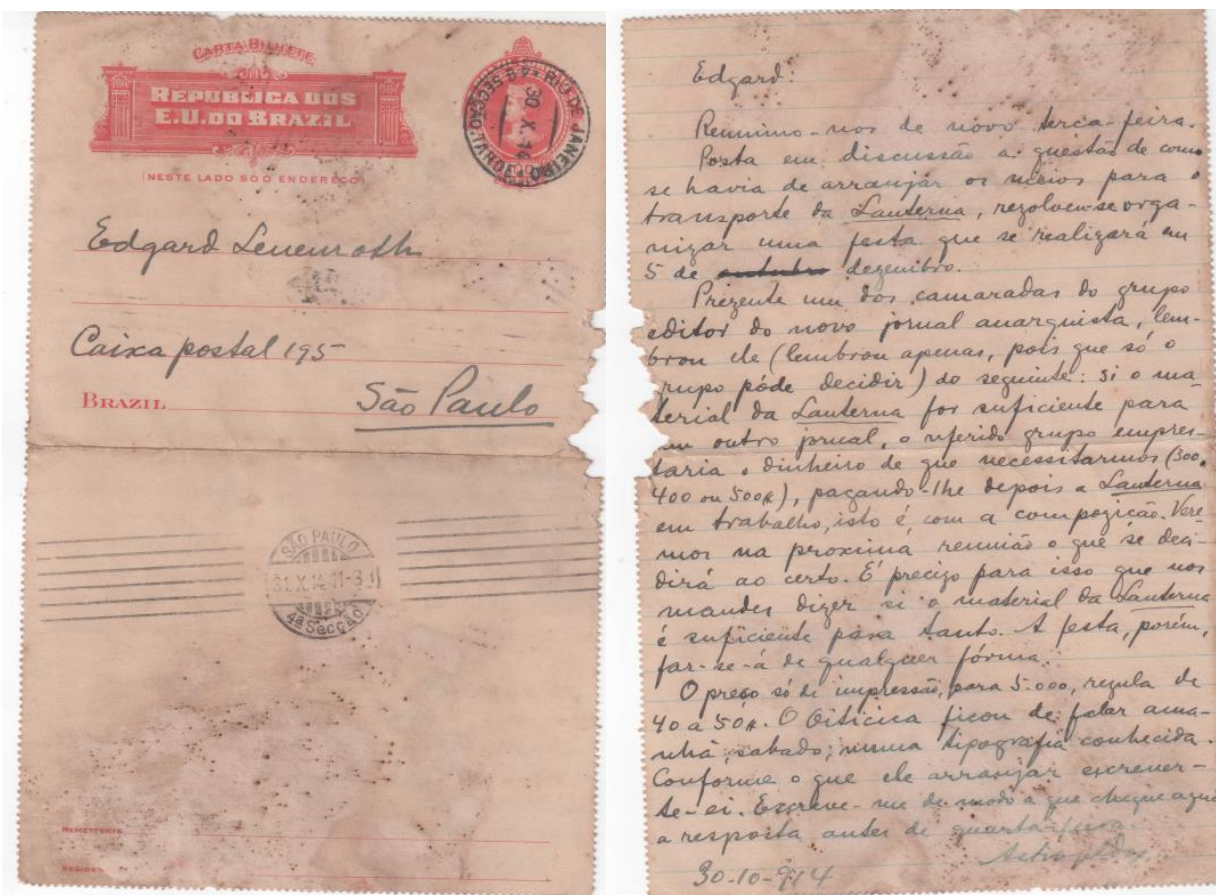 CARTA BILHETE
REPUBLICA DOS
E.U. DO BRAZIL
(NESTE LADO SÓ O ENDEREÇO)
RIO DE JANEIRO
30 X 14
Edgard Leuenroth
Caixa postal 195
BRAZIL
São Paulo
SÃO PAULO
31.X.14.11-3
4ª Secção
REMETTENTE
Edgard:
Reunimo-nos de novo terca-feira.
Posta em discussão a questão de como
se havia de arranjar os meios para o
transporte da Lanterna, rezolveu-se orga-
nizar uma festa que se realizará em
5 de outubro dezembro.
Prezente um dos camaradas do grupo
editor do novo jornal anarquista, lem-
brou ele (lembrou apenas, pois que só o
grupo póde decidir) do seguinte: si o ma-
terial da Lanterna for suficiente para
um outro jornal, o referido grupo empres-
taria o dinheiro de que necessitarmos (300,
400 ou 500$), pagando-lhe depois a Lanterna
em trabalho, isto é, com a compozição. Vere
mos na proxima reunião o que se deci-
dirá ao certo. É precizo para isso que nos
mandes dizer si o material da Lanterna
é suficiente para tanto. A festa, porém,
far-se-á de qualquer fórma.
O preço só de impressão, para 5.000, regula de
40 a 50$. O Oiticica ficou de falar ama-
nhã, sabado, numa tipografia conhecida.
Conforme o que ele arranjar escrever-
te-ei. Escreve-me de modo a que chegue aqui
a resposta antes de quarta-feira.
Astrojildo
30-10-914